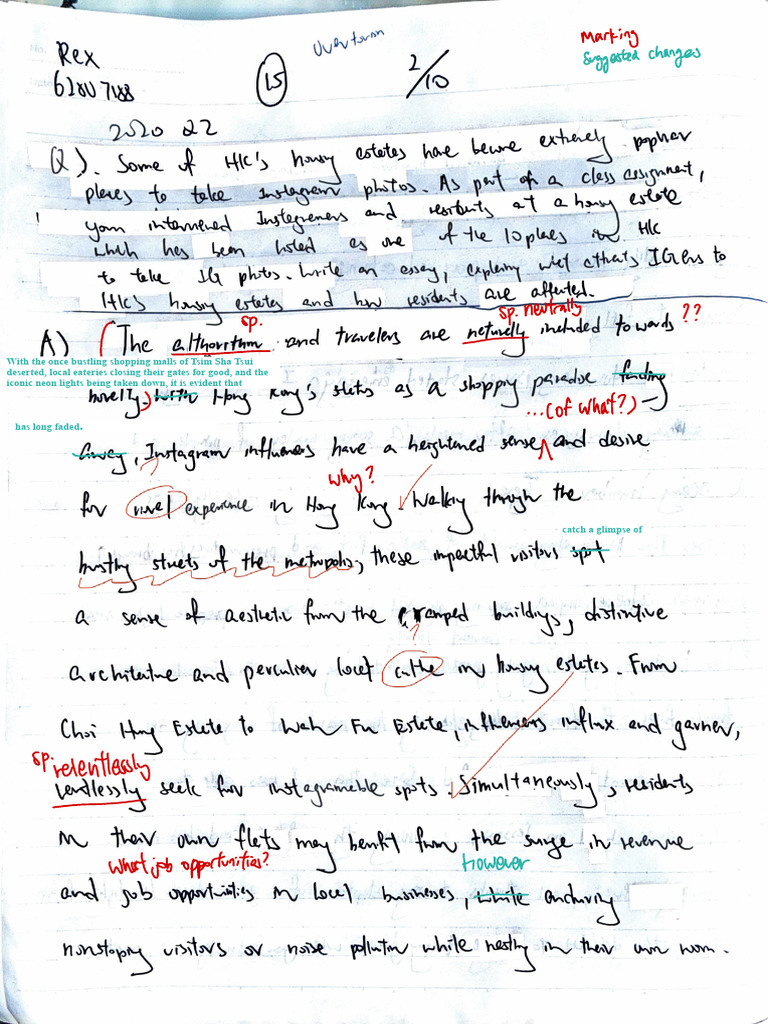 Rex
Marking
Suggested changes
15
2/10
2020 Q2
Q). Some of HK's housing estates have become extremely popular
places to take Instagram photos. As part of a class assignment,
you interviewed Instagramers and residents at a housing estate
which has been listed as one of the 10 places in HK
to take IG photos. Write an essay, explaining what attracts IGers to
HK's housing estates and how residents are affected.
sp. sp. neutrally
A) The and travelers are included towards ??
With the once bustling shopping malls of Tsim Sha Tsui
deserted, local eateries closing their gates for good, and the
iconic neon lights being taken down, it is evident that
novelty. With Hong Kong's status as a shopping paradise fading
...(of what?)
has long faded.
away, Instagram influencers have a heightened sense and desire
why?
for novel experience in Hong Kong. Walking through the
catch a glimpse of
bustling streets of the metropolis, these impactful visitors spot
a sense of aesthetic from the cramped buildings, distinctive
?
architecture and local in housing estates. From
Choi Hung Estate to Wah Fu Estate, influencers influx and garner,
sp. relentlessly
seek for instagramable spots. Simultaneously, residents
in their own flats may benefit from the surge in revenue
What job opportunities? however
and job opportunities in local businesses, while enduring
nonstoping visitors or noise pollution while nesting in their own room.